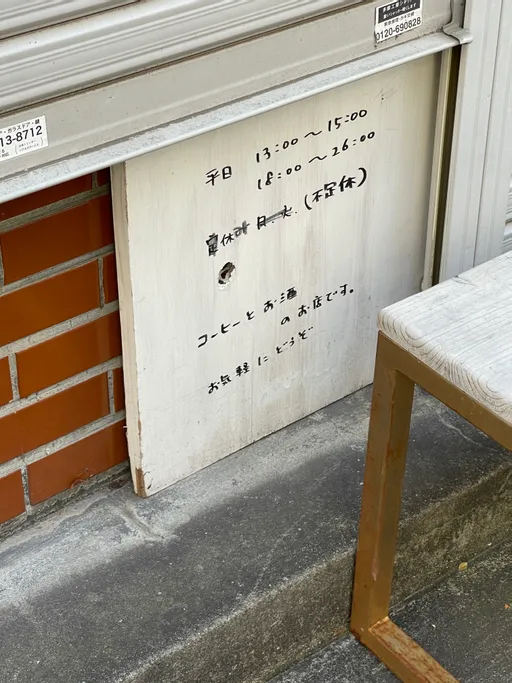 0120-690828
13-8712
平日 13:00〜15:00
18:00〜26:00
月.火.(不定休)
コーヒーとお酒
のお店です。
お気軽にどうぞ